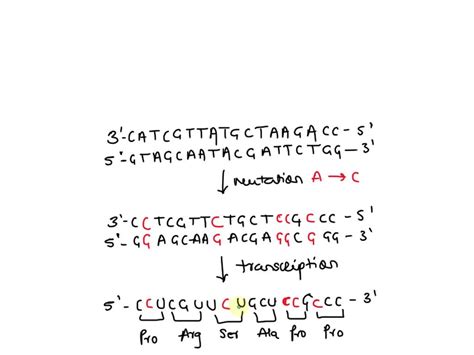 3'-CATCGTTATGCTAAGACC-5'
5'-GTAGCAATACGATTCTGG-3'
mutation A → C
3'-CCTCGTTCTGCTCCGCCC-5'
5'-GGAGCAAGACGAGGCGGG-3'
transcription
5'-CCUCGUUCUGCUCCGCCC-3'
Pro Arg Ser Ala Pro Pro